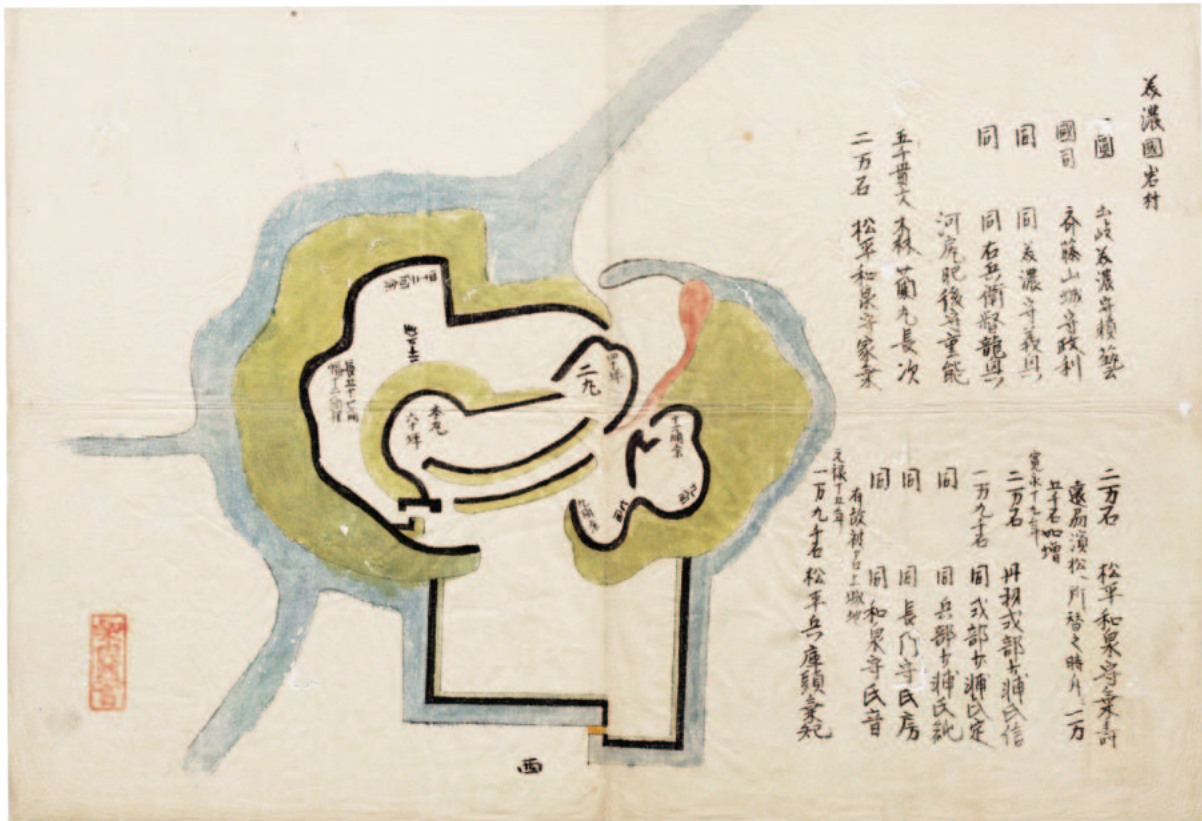 美濃國岩村
一圓 土岐美濃守頼藝
國司 斎藤山城守政利
同 同美濃守義興
同 同右兵衛督龍興
河尻肥後守重能
五千貫文 森蘭丸長次
二万石 松平和泉守家乗
二万石 松平和泉守乗寿
遠州濱松へ所替之時分一万
五千石加増
寛永十九年
二万石 丹羽式部少輔氏信
一万九千石 同式部少輔氏定
同 同兵部少輔氏純
同 同長門守氏房
同 同和泉守氏音
有故被召上城地
元禄十五年
一万九千石 松平兵庫頭乗紀
二ノ丸
本丸
六十坪
西